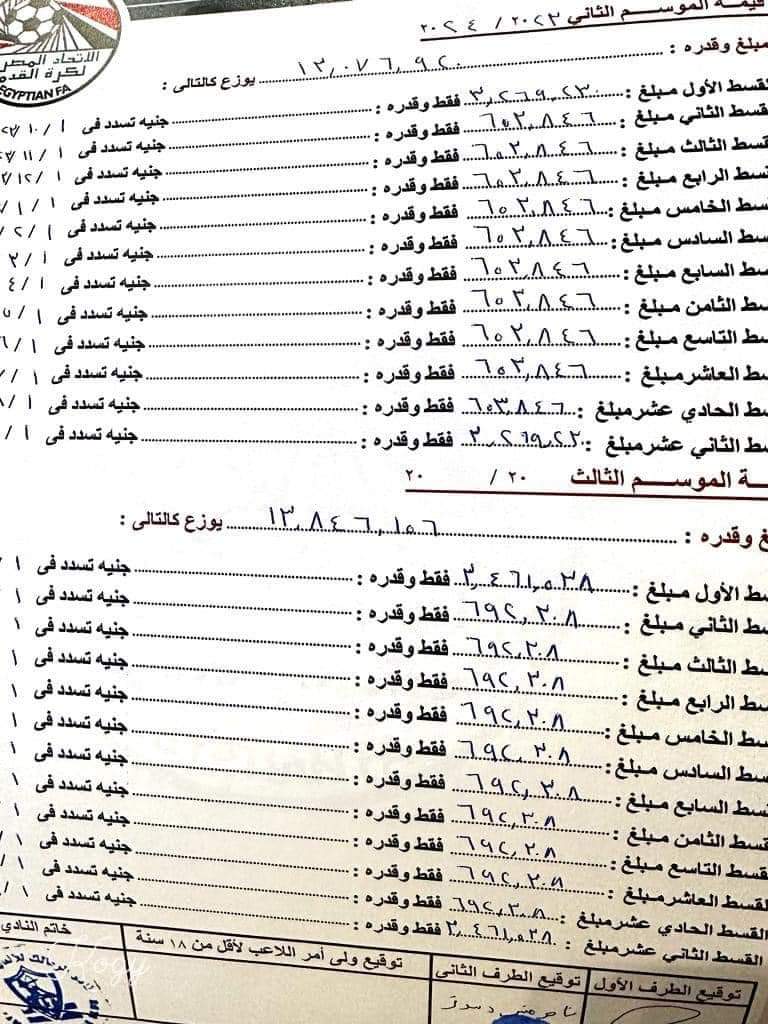 الاتحاد المصر
لكرة القدم
EGYPTIAN FA
قيمة الموسم الثاني ٢٠٢٣ / ٢٠٢٤
مبلغ وقدره : ١٣,٠٧٦,٩٢٠ يوزع كالتالى :
قسط الأول مبلغ : ٣,٢٦٩,٢٣٠ فقط وقدره : جنيه تسدد فى ١ / ١٠
قسط الثاني مبلغ : ٦٥٣,٨٤٦ فقط وقدره : جنيه تسدد فى ١ / ١١
سط الثالث مبلغ : ٦٥٣,٨٤٦ فقط وقدره : جنيه تسدد فى ١ / ١٢
سط الرابع مبلغ : ٦٥٣,٨٤٦ فقط وقدره : جنيه تسدد فى ١ / ١
سط الخامس مبلغ : ٦٥٣,٨٤٦ فقط وقدره : جنيه تسدد فى ١ / ٢
سط السادس مبلغ : ٦٥٣,٨٤٦ فقط وقدره : جنيه تسدد فى ١ / ٣
سط السابع مبلغ : ٦٥٣,٨٤٦ فقط وقدره : جنيه تسدد فى ١ / ٤
سط الثامن مبلغ : ٦٥٣,٨٤٦ فقط وقدره : جنيه تسدد فى ١ / ٥
سط التاسع مبلغ : ٦٥٣,٨٤٦ فقط وقدره : جنيه تسدد فى ١ / ٦
سط العاشر مبلغ : ٦٥٣,٨٤٦ فقط وقدره : جنيه تسدد فى ١ / ٧
سط الحادي عشر مبلغ : ٦٥٣,٨٤٦ فقط وقدره : جنيه تسدد فى ١ / ٨
سط الثاني عشر مبلغ : ٣,٢٦٩,٢٣٠ فقط وقدره : جنيه تسدد فى ١ /
ـة الموسم الثالث ٢٠ / ٢٠
ـغ وقدره : ١٣,٨٤٦,١٥٦ يوزع كالتالى :
سط الأول مبلغ : ٣,٤٦١,٥٣٨ فقط وقدره : جنيه تسدد فى ١ /
سط الثاني مبلغ : ٦٩٢,٣٠٨ فقط وقدره : جنيه تسدد فى ١
سط الثالث مبلغ : ٦٩٢,٣٠٨ فقط وقدره : جنيه تسدد فى ١
سط الرابع مبلغ : ٦٩٢,٣٠٨ فقط وقدره : جنيه تسدد فى ١
سط الخامس مبلغ : ٦٩٢,٣٠٨ فقط وقدره : جنيه تسدد فى ١
سط السادس مبلغ : ٦٩٢,٣٠٨ فقط وقدره : جنيه تسدد فى ١
سط السابع مبلغ : ٦٩٢,٣٠٨ فقط وقدره : جنيه تسدد فى ١
قسط الثامن مبلغ : ٦٩٢,٣٠٨ فقط وقدره : جنيه تسدد فى ١
قسط التاسع مبلغ : ٦٩٢,٣٠٨ فقط وقدره : جنيه تسدد فى ١
لقسط العاشر مبلغ : ٦٩٢,٣٠٨ فقط وقدره : جنيه تسدد فى ١ /
القسط الحادي عشر مبلغ : ٦٩٢,٣٠٨ فقط وقدره : جنيه تسدد فى ١ /
القسط الثاني عشر مبلغ : ٣,٤٦١,٥٣٨ فقط وقدره : جنيه تسدد فى ١ /
توقيع الطرف الأول توقيع الطرف الثانى توقيع ولى أمر اللاعب لأقل من ١٨ سنة خاتم النادي
Rogy